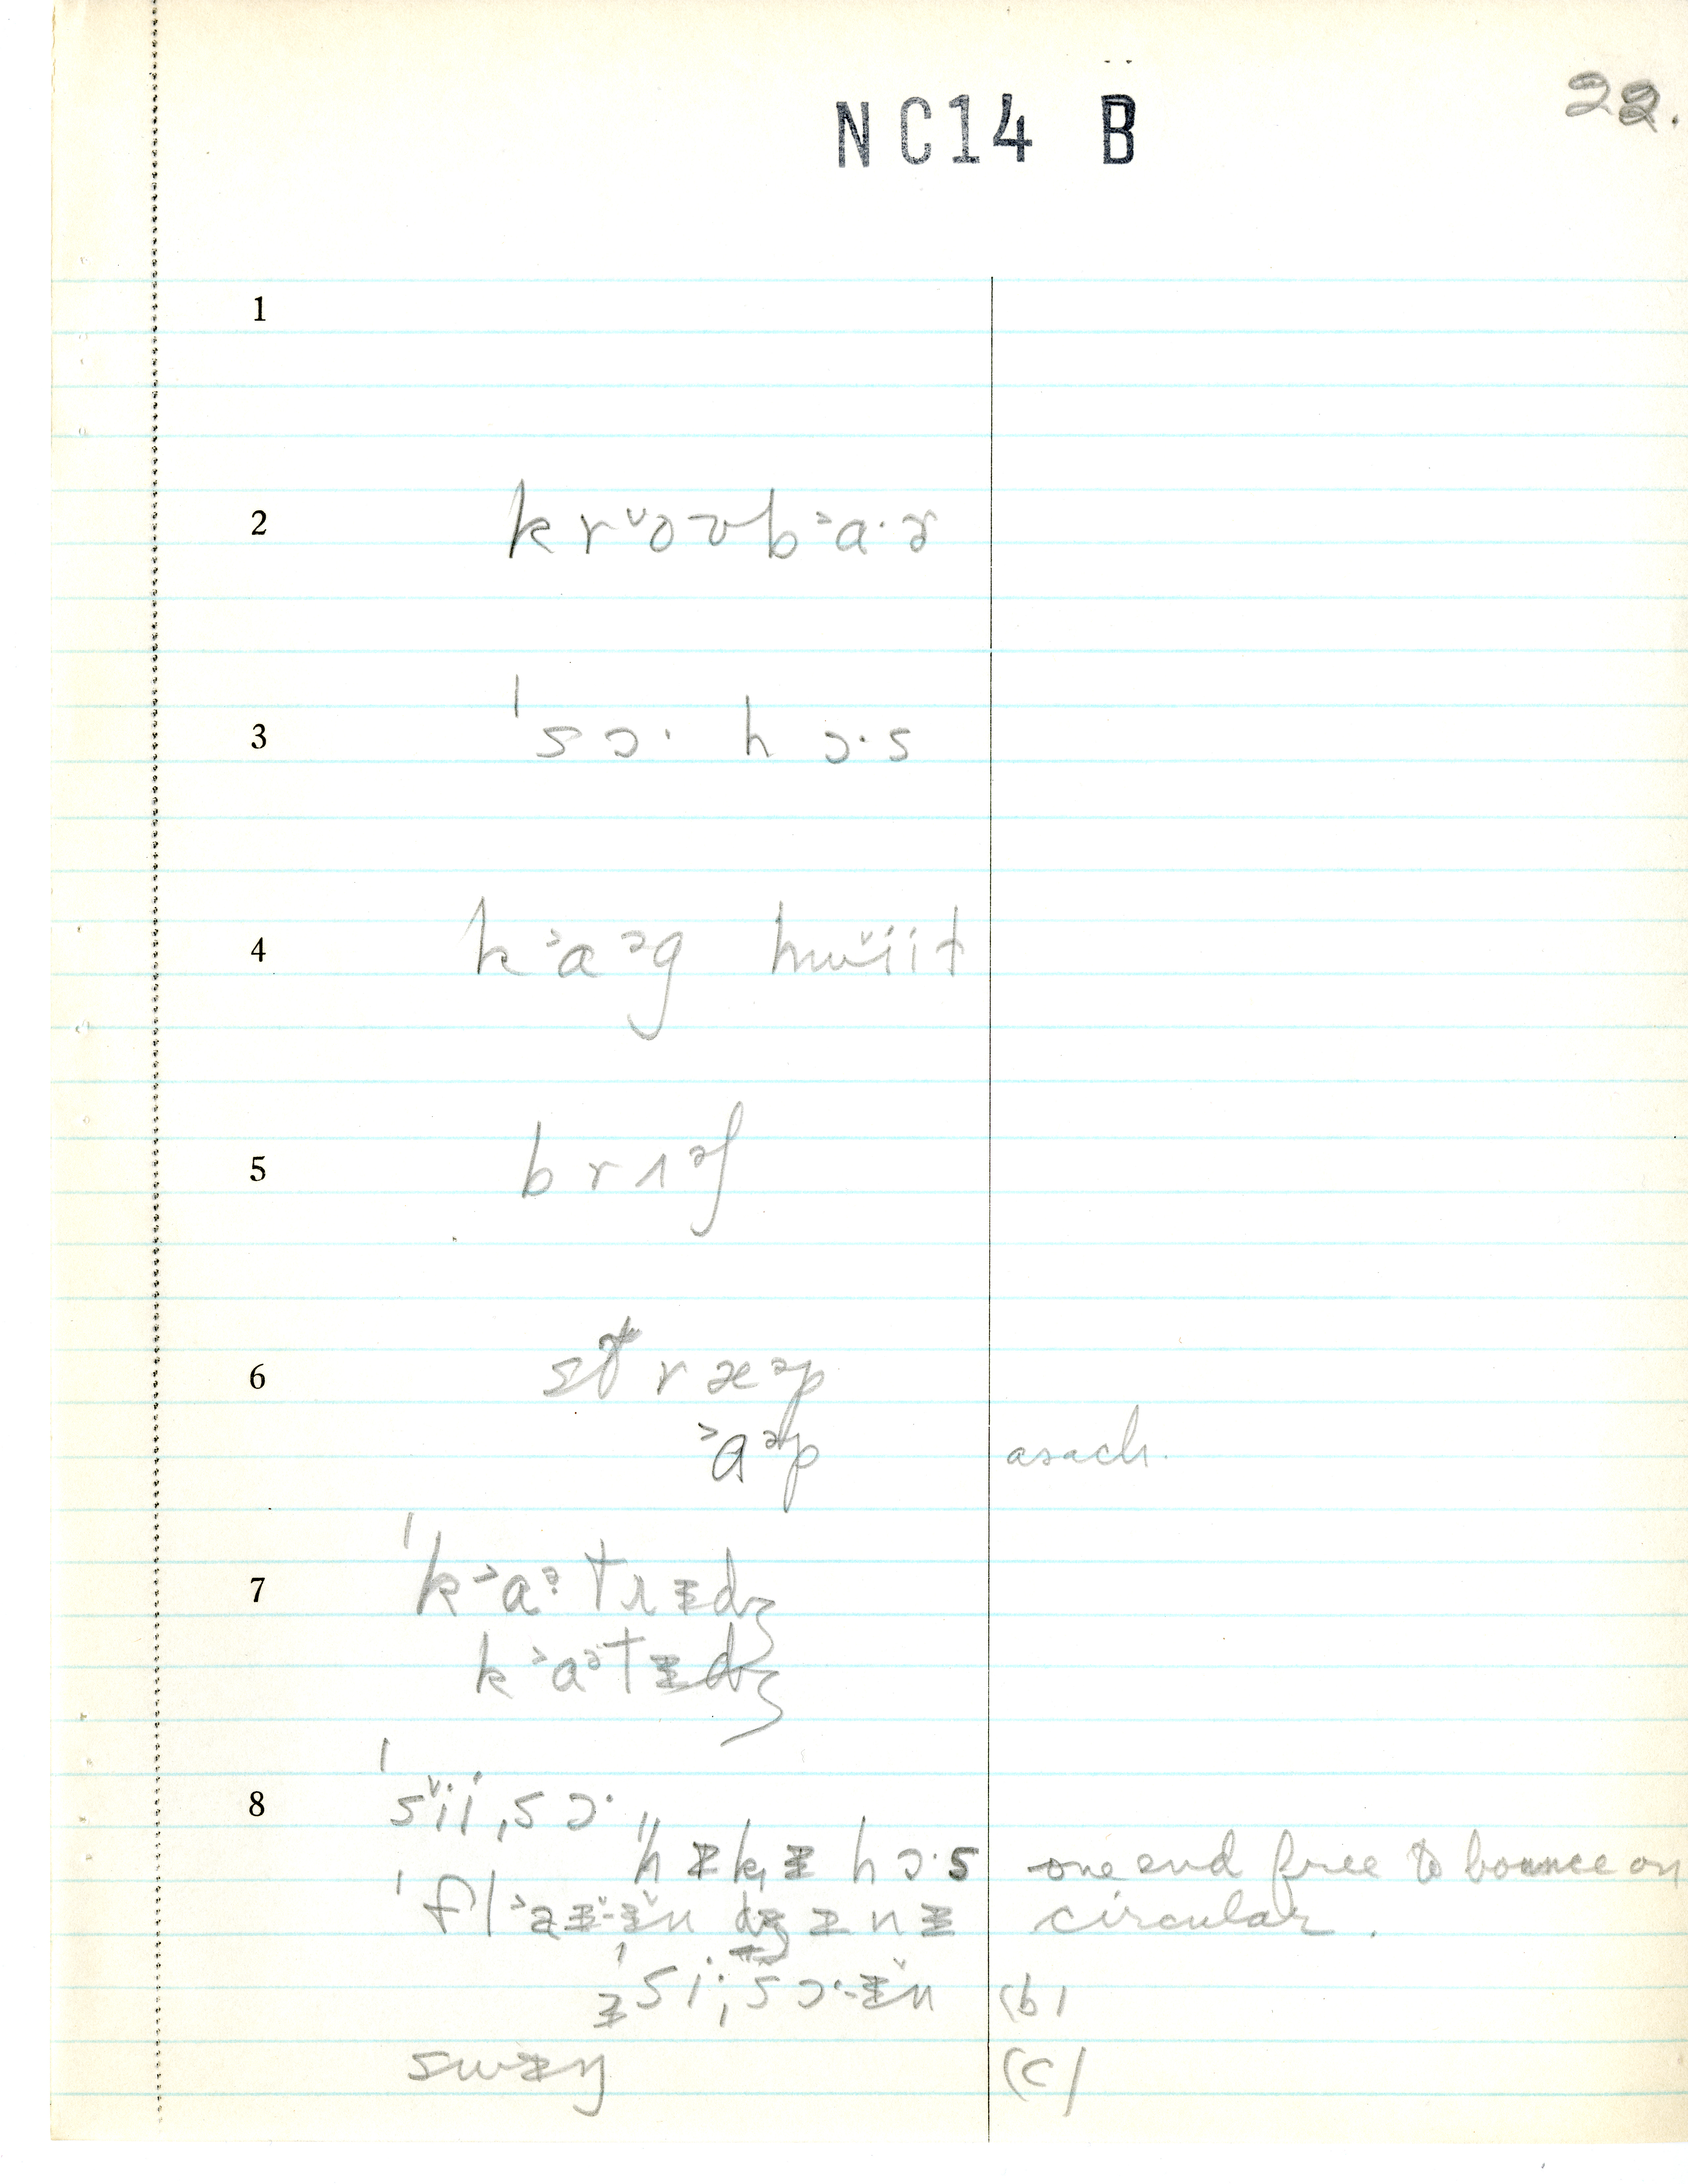 22.
NC14 B
1
2 k r ˅o ʊ b ˃a · ɚ
3 ˈs ɔ · h ɔ · s
4 k ˃a ᵊg hw˅iit
5 b r ʌ ᵊf
6 st r æ ᵊp
˃a ᵊp asach.
7 ˈk ˃a ᵊ t r ɪ dʒ
k ˃a ᵊ t ɪ dʒ
8 ˈs˅ii ˌs ɔ ·
h ɪ k ɪ h ɔ · s one end free to bounce on
ˈf l ˃a circular.
ˈs i ˌs ɔ · - ɪ̆ n (b)
s w ɪ ŋ (c)